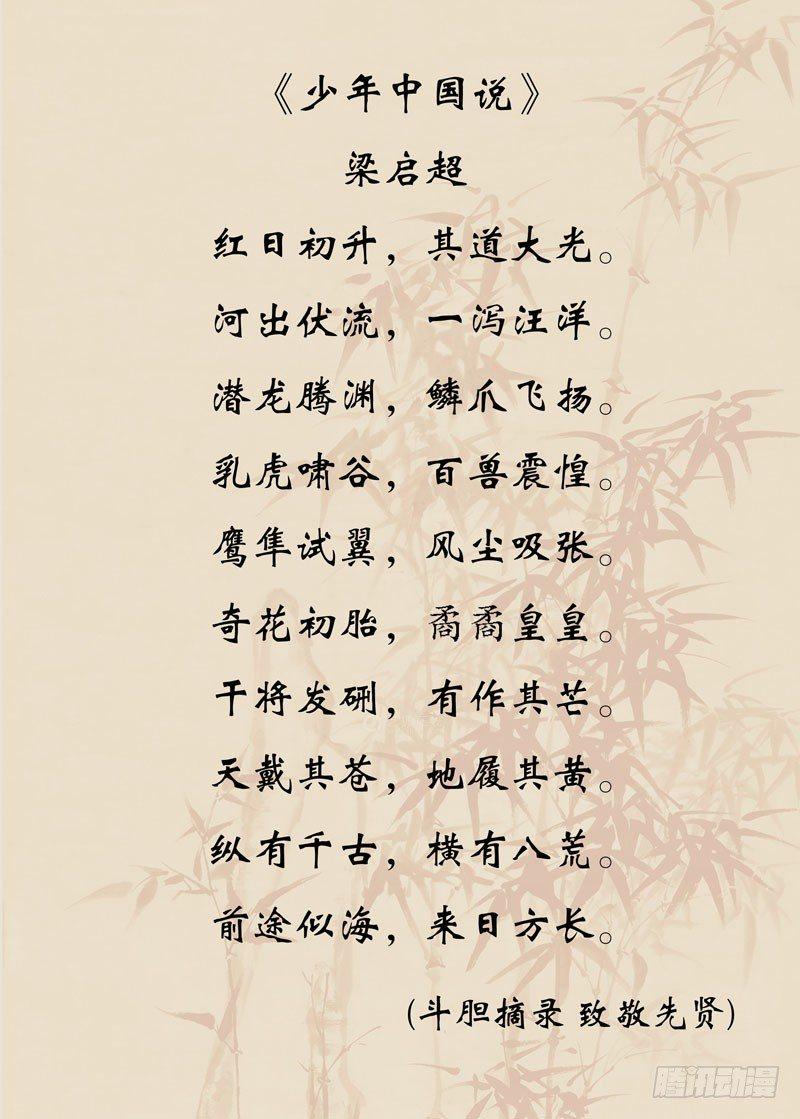 《少年中国说》
梁启超
红日初升，其道大光。
河出伏流，一泻汪洋。
潜龙腾渊，鳞爪飞扬。
乳虎啸谷，百兽震惶。
鹰隼试翼，风尘吸张。
奇花初胎，矞矞皇皇。
干将发硎，有作其芒。
天戴其苍，地履其黄。
纵有千古，横有八荒。
前途似海，来日方长。
(斗胆摘录 致敬先贤)
腾讯动漫